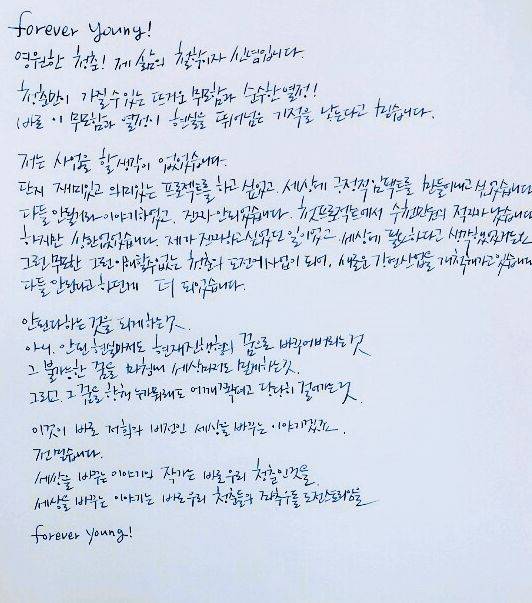 forever young!
영원한 청춘! 제 삶의 철학이자 신념입니다.
청춘만이 가질 수 있는 뜨거운 무모함과 순수한 열정!
바로 이 무모함과 열정이 현실을 뛰어넘는 기적을 낳는다고 믿습니다.
저는 사업을 할 생각이 없었습니다.
단지 재미있고 의미있는 프로젝트를 하고 싶었고, 세상에 긍정적 임팩트를 만들어내고 싶었습니다
다들 안될거라 이야기하였고, 진짜 안되었습니다. 첫 프로젝트에서 수천만원의 적자가 났습니다
하지만 상관없었습니다. 제가 진짜 하고 싶었던 일이었고 세상에 필요하다고 생각했었
그런 무모한 그런 이해할 수 없는 청춘의 도전에 사업이 되어, 새로운 강연산업을 개척해가고 있습니다
다들 안된다고 하던게 더 되었습니다.
안된다 하는 것을 되게 하는 것.
아니. 안된 현실마저도 현재진행형의 꿈으로 바꾸어버리는 것
그 불가능한 꿈을 세상마저도 하는 것.
그리고, 그 꿈을 향해 누가 뭐래도 어깨 펴고 당당히 걸어가는 것
이것이 바로 저희의 비전인 세상을 바꾸는 이야기겠죠.
전 믿습니다.
세상을 바꾸는 이야기의 작가는 바로 우리 청춘인 것을
세상을 바꾸는 이야기는 바로 우리 청춘들의 좌충우돌 도전스토리임을
forever young!